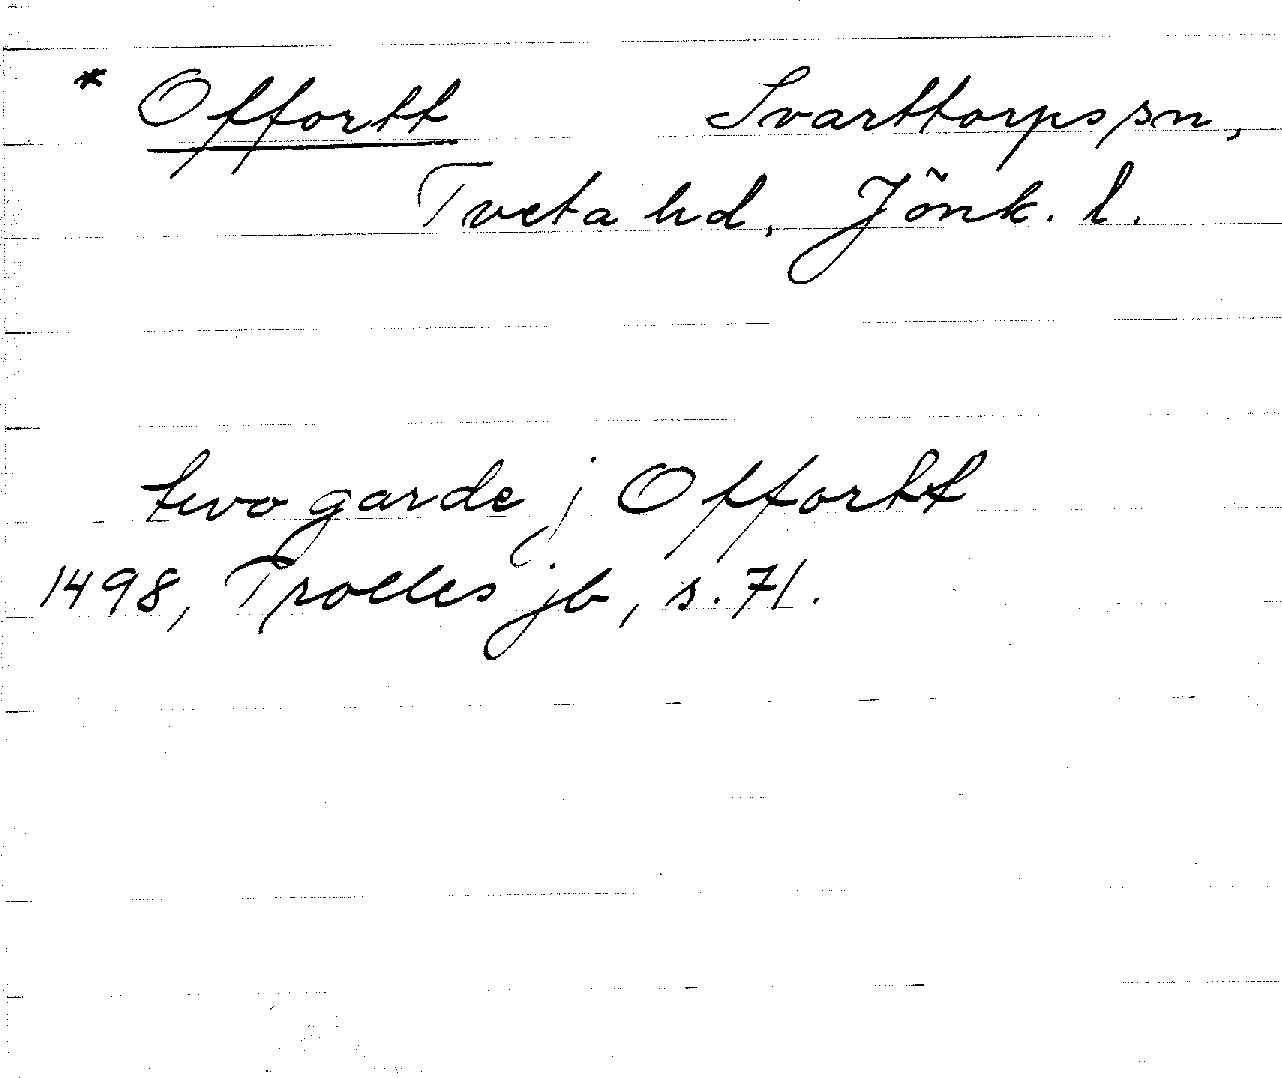 * Offortt Svarttorps sn,
Tveta hd, Jönk. l.
two garde j Offortt
1498, Trolles jb, s. 71.